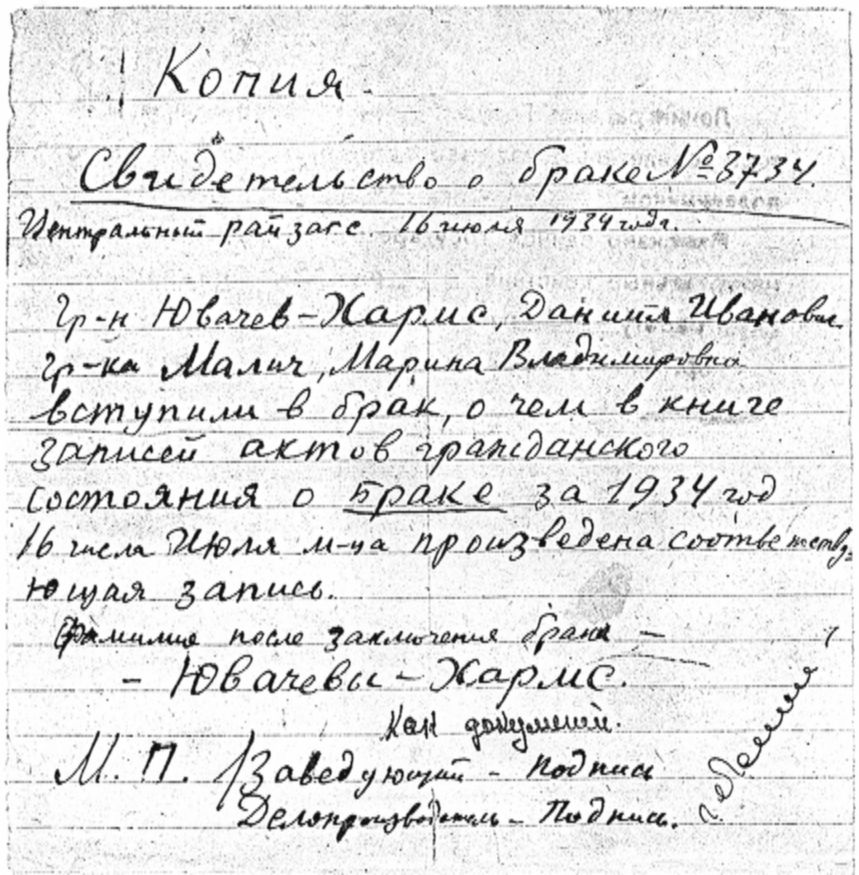 Копия.
Свидетельство о браке № 3734.
Центральный райзагс. 16 июля 1934 года.
Гр-н Ювачев-Хармс, Даниил Иванович
гр-ка Малич, Марина Владимировна
вступили в брак, о чем в книге
записей актов гражданского
состояния о браке за 1934 год
16 числа Июля м-ца произведена соответству-
ющая запись.
Фамилия после заключения брака —
- Ювачевы-Хармс.
М. П. Заведующий - подпись
Делопроизводитель - Подпись.